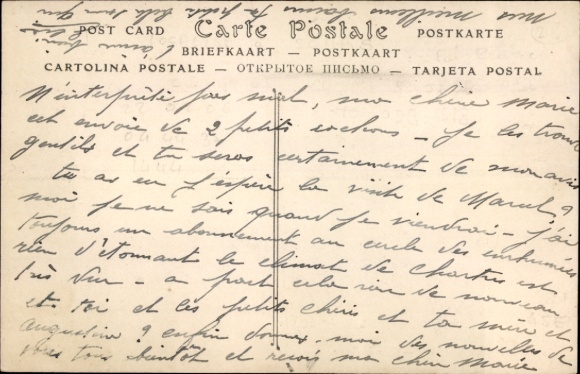 POST CARD Carte Postale POSTKARTE
BRIEFKAART — POSTKAART
CARTOLINA POSTALE — ОТКРЫТОЕ ПИСЬМО — TARJETA POSTAL
N'interprète pas mal, ma chère Marie
cet envoie de 2 petits cochons — Je les trouve
gentils et tu seras certainement de mon avis
tu as eu j'espère la visite de Marcel ?
moi je ne sais quand je viendrai — j'ai
toujours un abonnement au cercle des enrhumés
rien d'étonnant le climat de Chartres est
très dur — a part cela rien de nouveau
et toi et les petits chéris et ta mère et
Augustine ? enfin donnez-moi des nouvelles de
vous tous bientôt et reçois ma chère Marie
mes meilleurs